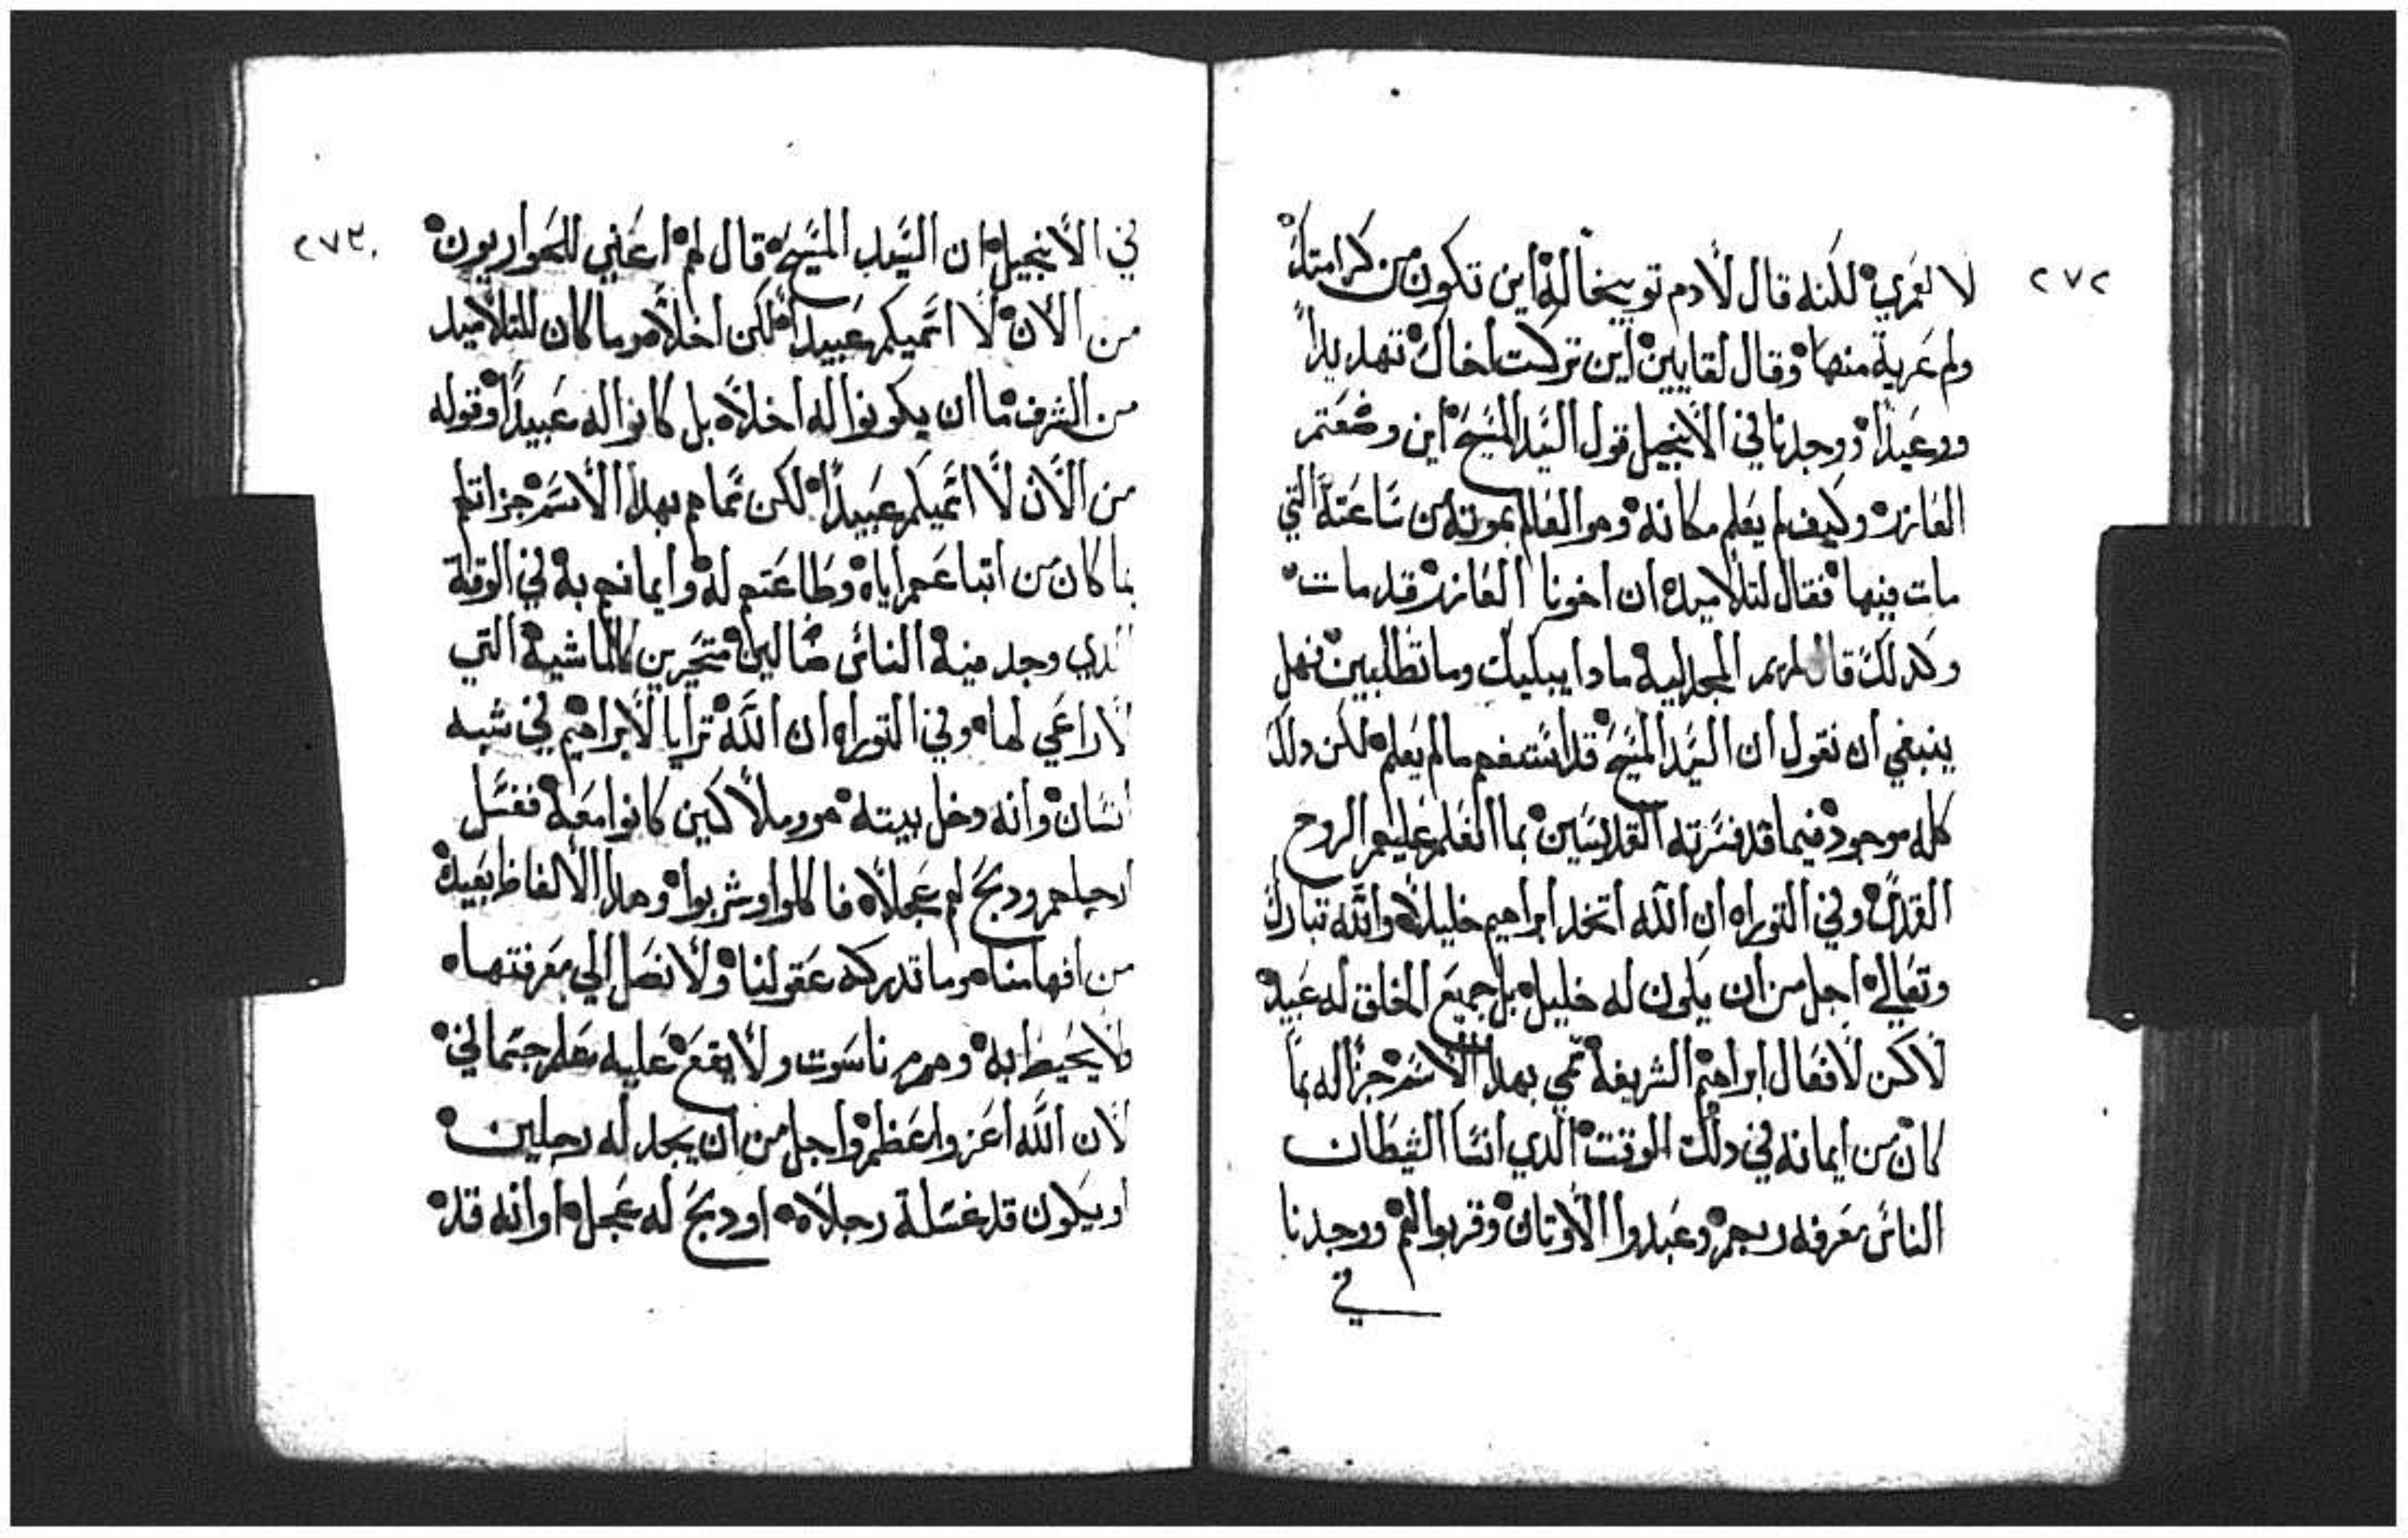 ٢٧٢
لا لعمري لكنه قال لادم توبيخا له اين تكون من كرامتك
ولم عرية منها وقال لقايين اين تركت اخاك تهديداً
ووعيداً ووجدنا في الانجيل قول السَيد المسَيح اين وضعتم
العازر وكيف لم يعلم مكانه وهو العالم بموته من سَاعته التي
مات فيها فقال لتلاميده ان اخونا العازر قد مات
وكدلك قال لمريم المجدلية مادا يبكيك وما تطلبين فهل
ينبغي ان نقول ان السَيد المسَيح قد استفهم ما لم يعلم لكن دلك
كله موجود فيما قد فسَرته القديسَين بما الهمهم عليهم الروح
القدسَ وفي التوراه ان الله اتخد ابراهيم خليلاً والله تبارك
وتعالي اجل من ان يكون له خليل بل جميع الخلق له عبيد
لاكن لافعال ابراهيم الشريفة سمي بهدا الاسَم جزا له بما
كان من ايمانه في دلك الوقت الدي انسَا الشيطان
الناسَ معرفه ربهم وعبدوا الاوتان وقربوا لهم ووجدنا
في
٢٧٣
في الانجيل ان السَيد المسَيح قال لهم اعني للحواريون
من الان لا اسَميكم عبيداً لكن اخلاً وما كان للتلاميد
من الشرف ما ان يكونوا له اخلاً بل كانوا له عبيداً وقوله
من الان لا اسَميكم عبيداً لكن سَماهم بهدا الاسَم جزا لهم
بما كان من اتباعهم اياه وطاعتهم له وايمانهم به في الوقت
الدي وجد فيه الناسَ ضالين متحيرين كالماشية التي
لا راعي لها وفي التوراه ان الله ترايا لابراهيم في شبه
انسَان وانه دخل بيته هو وملاكين كانوا معه فغسَل
ارجلهم ودبح لهم عجلاً فاكلوا وشربوا وهدا الالفاظ بعيد
من افهامنا وما تدركه عقولنا ولا نصل الي معرفتها
ولا يحيط به وهم ناسَوت ولا يقع عليه جسَماني
لان الله اعز واعظم واجل من ان يجد له رجلين
او يكون قد غسَلة رجلاه او دبح له عجل او انه قد